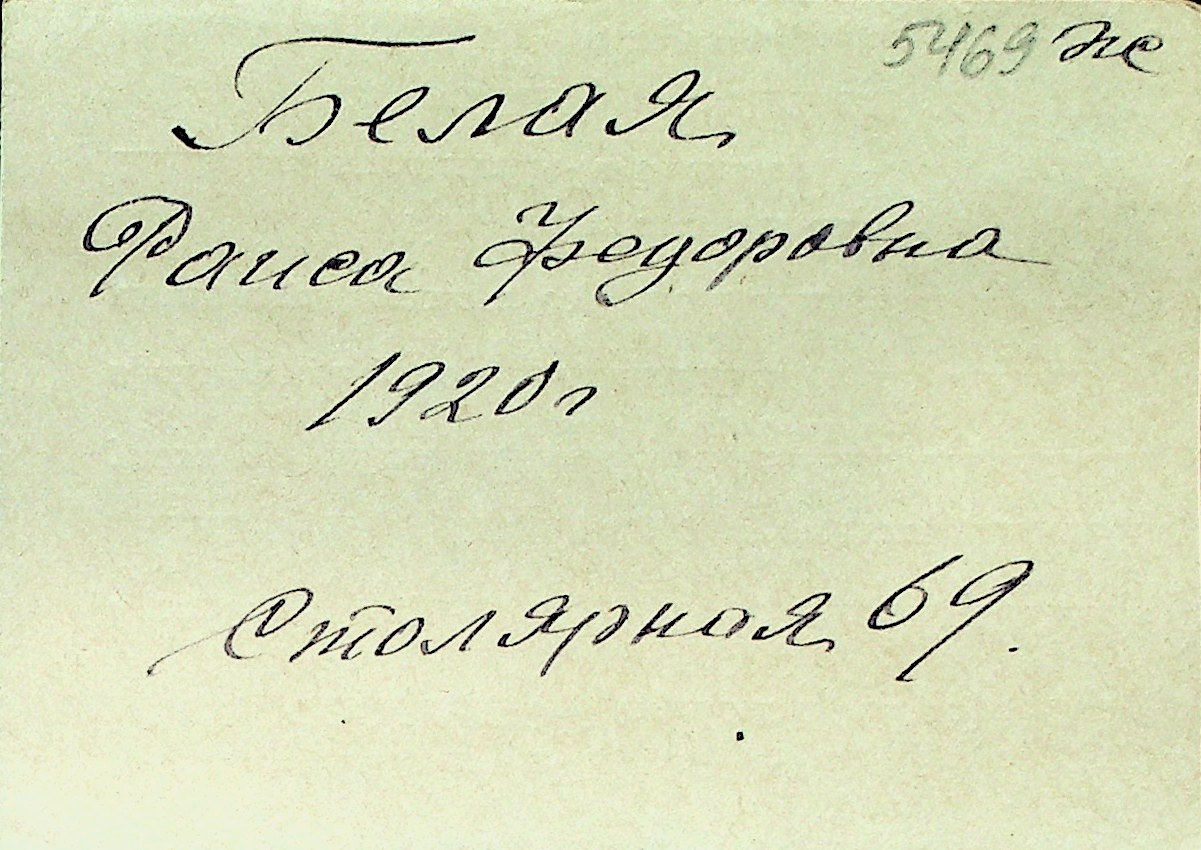 5469 же
Белая
Раиса Федоровна
1920 г
Столярная 69.